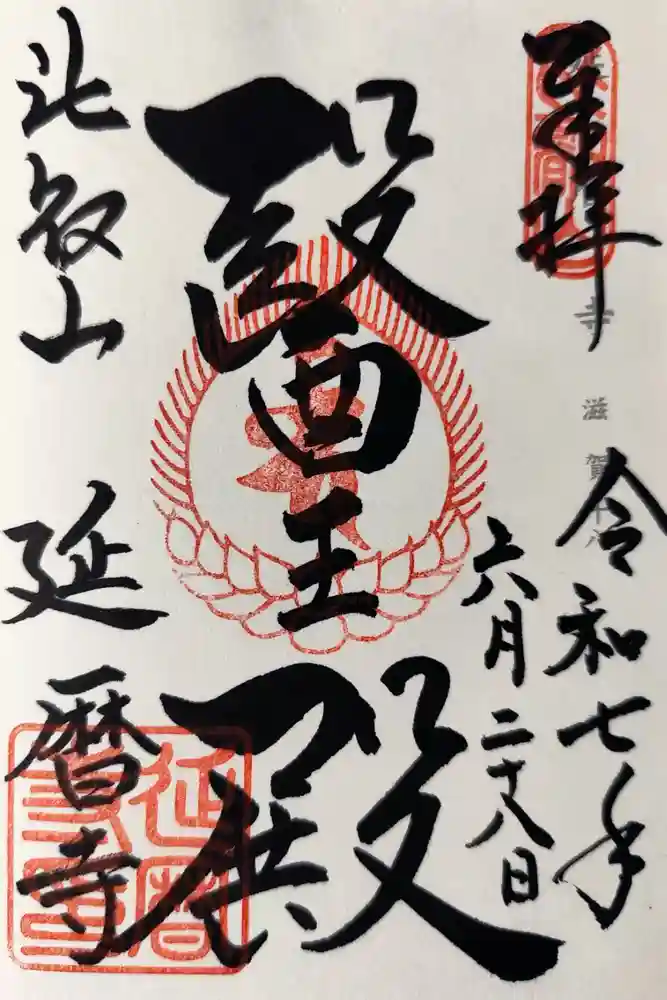 奉拝
令和七年
六月二十八日
醫王殿
比叡山
延暦寺
延暦
寺印